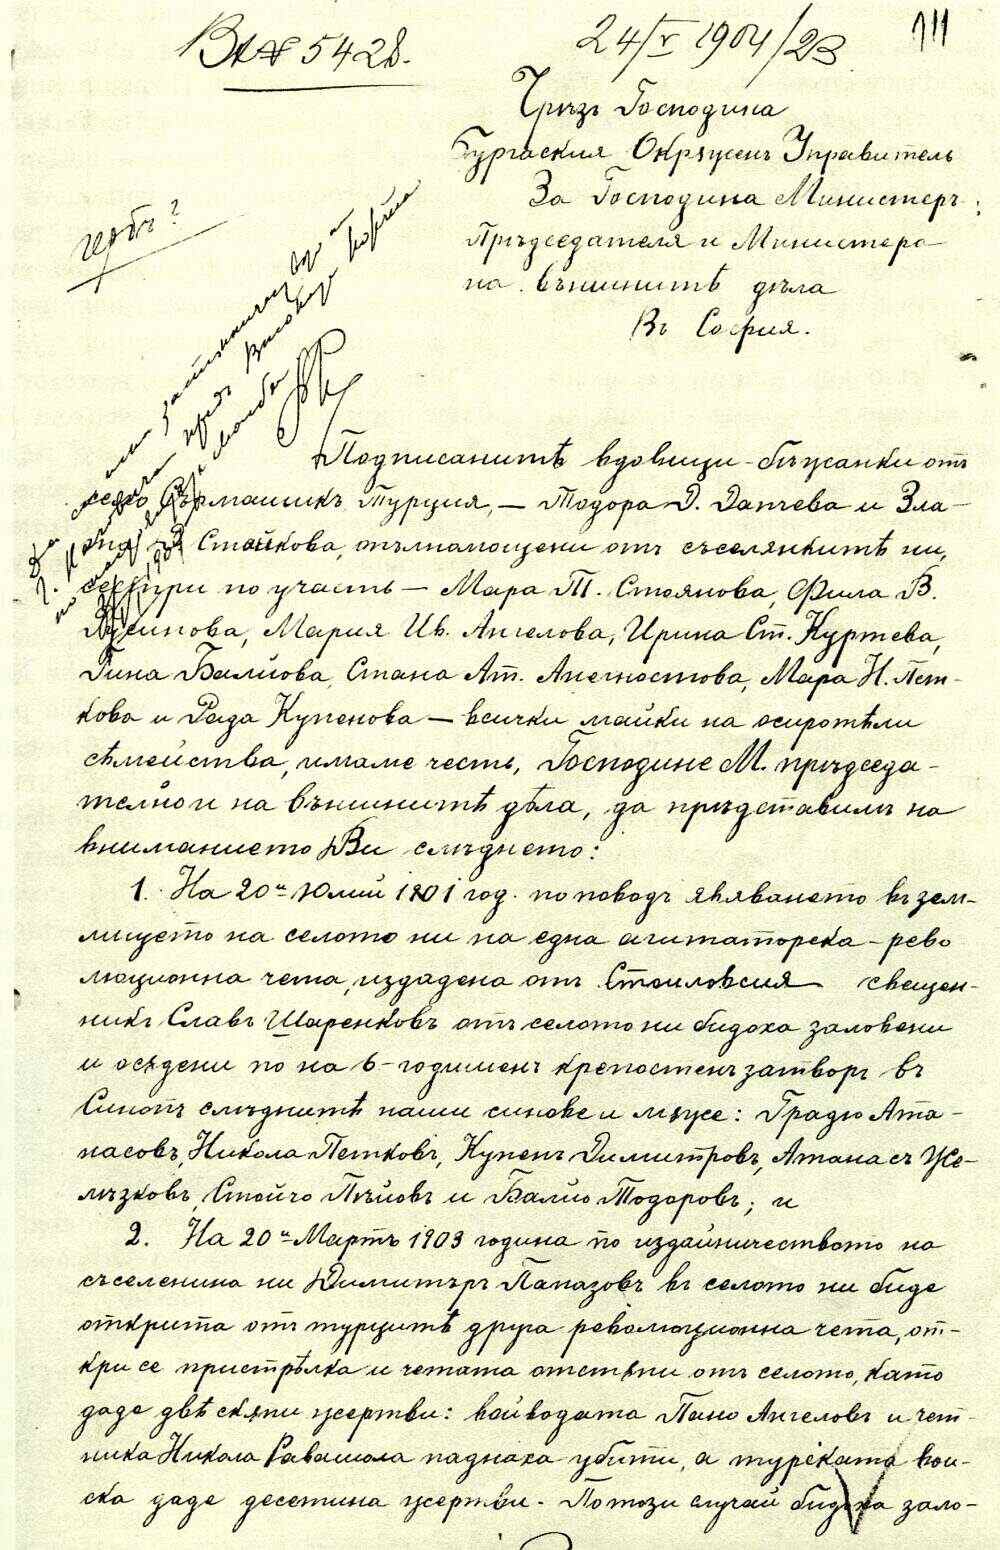 Вх № 5428.
24/V 1904/23
711
Чрѣзъ Господина
Бургаския Окрѫженъ Управитель
За Господина Министеръ-
Прѣдседателя и Министера
на Външнитѣ дѣла
Въ София.
Подписанитѣ вдовици-бѣжанки отъ
село Сърмашикъ Турция, — Тодора Д. Дапчева и Зла-
Стойкова, опълномощени отъ съселянкитѣ ни,
сестри по участь — Мара Т. Стоянова, Фила В.
Мария Ив. Ангелова, Ирина Ст. Куртева,
Гина Балйова, Стана Ат. Анегностова, Мара Н. Пет-
кова и Рада Купенова — всички майки на осиротѣли
сѣмейства, имаме честь, Господине М. прѣдседа-
телю и на външнитѣ дѣла, да прѣдставимъ на
вниманието Ви слѣднето:
1. На 20й Юлий 1901 год. по поводъ явяването въ зем-
лището на селото ни на една агитаторска-рево
люционна чета, издадена отъ Стоиловския свещен-
никъ Славъ Шаренковъ отъ селото ни бидоха заловени
и осѫдени по на 6-годишенъ крепостенъ затворъ въ
Синопъ слѣднитѣ наши синове и мѫже: Градю Ата-
насовъ, Никола Петковъ, Купенъ Димитровъ, Атанасъ Же-
лѣзковъ, Стойчо Пѣйовъ и Балйо Тодоровъ; и
2. На 20й Мартъ 1903 година по издайничеството на
съселенина ни Димитъръ Папазовъ въ селото ни биде
открита отъ турцитѣ друга революционна чета, от-
кри се пристрѣлка и четата отстѫпи отъ селото, като
даде двѣ скѫпи жертви: войводата Пано Ангеловъ и чет-
ника Никола Равашола паднаха убити, а турската вой-
ска даде десетина жертви. По този случай бидоха зало-